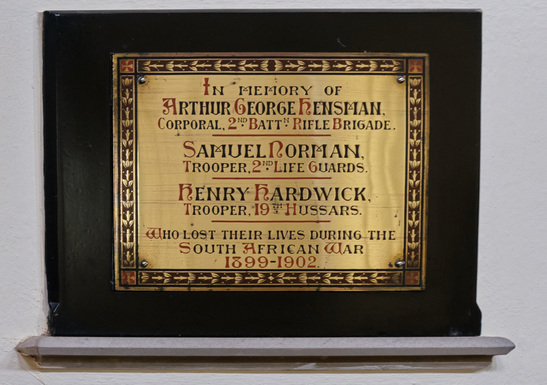 In memory of
Arthur George Hensman,
Corporal, 2nd Battn Rifle Brigade.
Samuel Norman,
Trooper, 2nd Life Guards.
Henry Hardwick,
Trooper, 19th Hussars.
Who lost their lives during the
South African War
1899-1902.